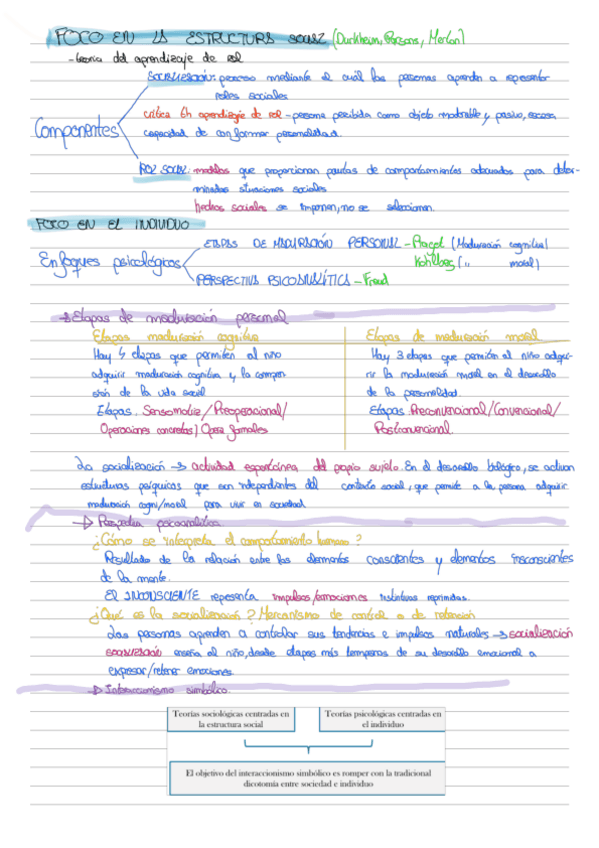 FOCO EN LA ESTRUCTURA SOCIAL (Durkheim, Parsons, Merton)
- teoría del aprendizaje de rol
SOCIALIZACIÓN: proceso mediante el cuál las personas aprenden a representar
roles sociales
Componentes
crítica th aprendizaje de rol - persona percibida como objeto moldeable y pasivo, escasa
capacidad de conformar personalidad.
ROL SOCIAL: modelos que proporcionan pautas de comportamientos adecuados para deter-
minadas situaciones sociales
hechos sociales se imponen, no se seleccionan.
FOCO EN EL INDIVIDUO
Enfoques psicológicos
ETAPAS DE MADURACIÓN PERSONAL - Piaget (Maduración cognitiva)
Kohlberg ( " moral)
PERSPECTIVA PSICOANALÍTICA - Freud
→ Etapas de maduración personal
Etapas maduración cognitiva
Hay 4 etapas que permiten al niño
adquirir maduración cognitiva y la compren
sión de la vida social
Etapas. Sensomotriz/Preoperacional/
Operaciones concretas/Opera formales
Etapas de maduración moral
Hay 3 etapas que permiten al niño adqui-
rir la maduración moral en el desarrollo
de la personalidad.
Etapas. Preconvencional/Convencional/
Postconvencional.
La socialización → actividad espontánea del propio sujeto. En el desarrollo biológico, se activan
estructuras psíquicas que son independientes del contexto social, que permite a la persona adquirir
maduración cogni/moral para vivir en sociedad.
→ Perspectiva psicoanalítica
¿Cómo se interpreta el comportamiento humano?
Resultado de la relación entre los elementos conscientes y elementos inconscientes
de la mente.
El INCONSCIENTE representa impulsos/emociones instintivas reprimidas.
¿Qué es la socialización? Mecanismo de control o de retención
Las personas aprenden a controlar sus tendencias e impulsos naturales → socialización
SOCIALIZACIÓN enseña al niño, desde etapas más tempranas de su desarrollo emocional a
expresar/retener emociones.
→ Interaccionismo simbólico.
Teorías sociológicas centradas en
la estructura social
Teorías psicológicas centradas en
el individuo
El objetivo del interaccionismo simbólico es romper con la tradicional
dicotomía entre sociedad e individuo